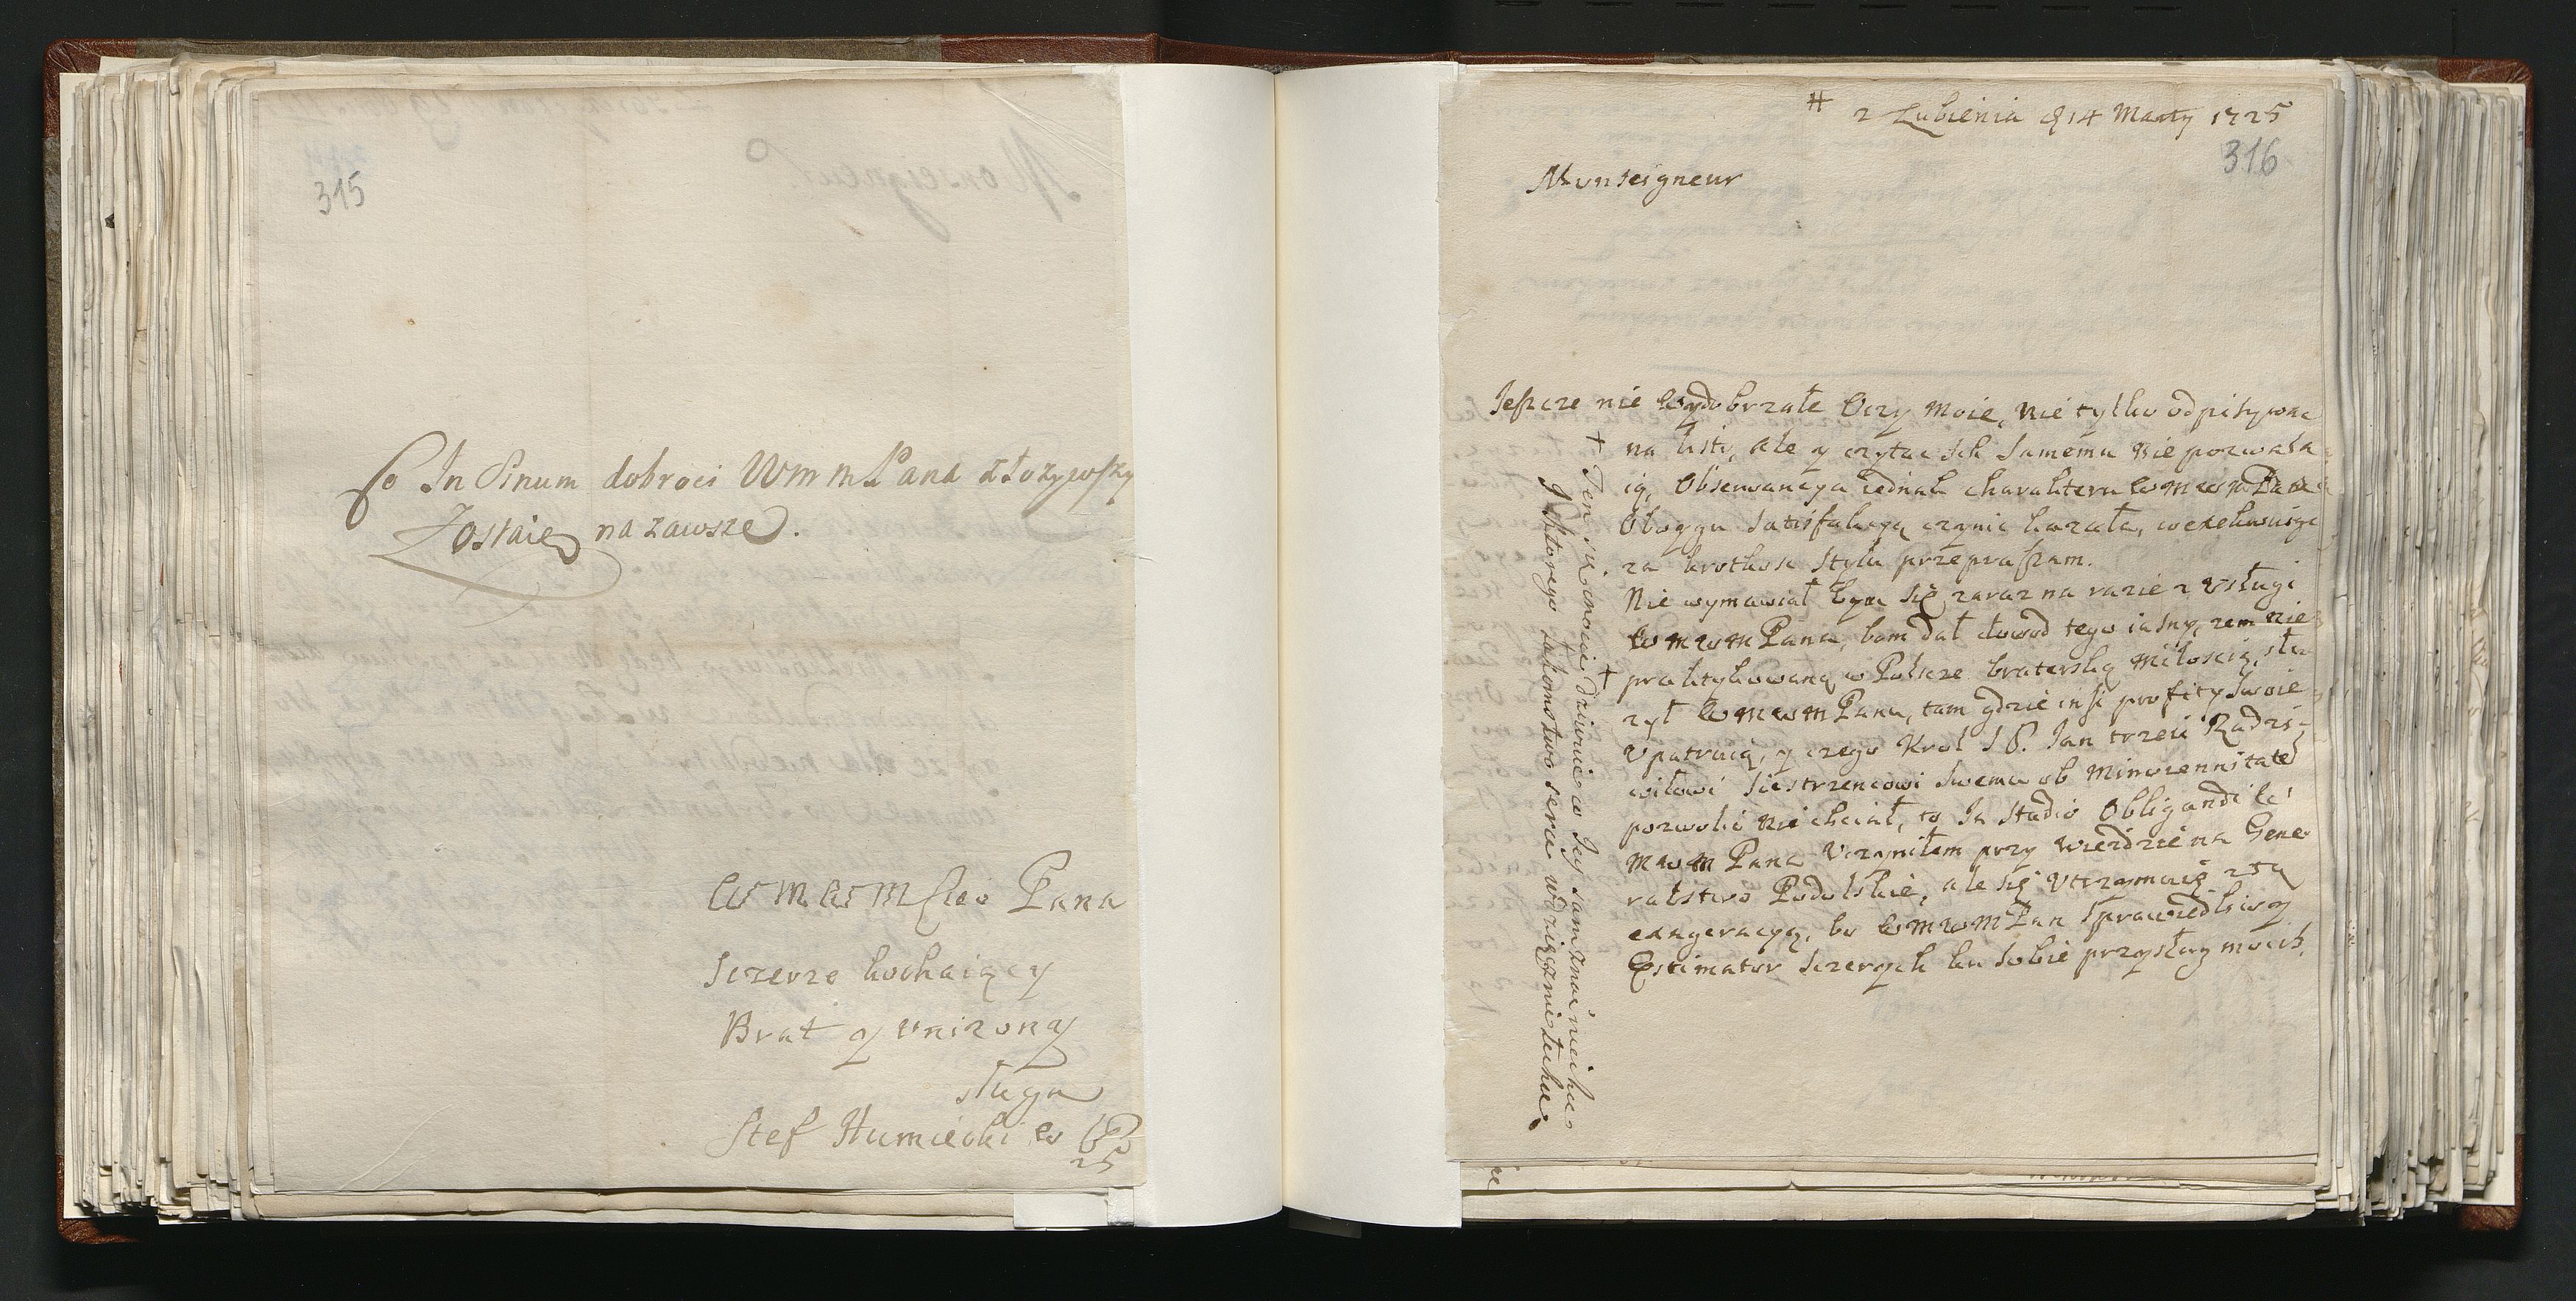 315
Co In Sinum dobroci WmmPana złożywszy
Zostaię na zawsze.
WMWMscio Pana
Sczerze kochaiący
Brat y vnizony
sługa
Stef Humiecki w P
# z Lubienia d 14 Marty 1725
316
Monseigneur
Jeszcze nie wydobrzałe Oczy moie, nie tylko odpisywac
na listy, ale y czytac ich samemu nie pozwala
ią, Obserwancya iednak charakteru WMWM Pana
Oboygu satisfakcyą czynic kazała, w
za krotkosc stylu przepraszam.
Nie wymawiał bym się zaraz na razie z vsługi
WMWM Pana, bom dał dowod tego iasny, zem nie
+ praktykowaną w Polscze braterską miłoscią, słu
zył WMWM Panu, tam gdzie inszi profity swoie
vpatruią, y czego Krol S P. Jan trzeci Radzi-
wiłowi siestrzencowi swemu ob Minorennitatem
pozwolic nie chciał, to In studio Obligandi W
MWM Pana vczyniłem przy wiezdzie na Gene
ralstwo Podolskie, ale się vtrzymuię z tą
exageracyą, bo WMWM Pan sprawiedliwy
Estimator sczerych ku sobie przysług moich.
+ Ten się znowu dziwnie w Jey sam znac nie chce
J ktorego łakomstwo serca wdzięcznie